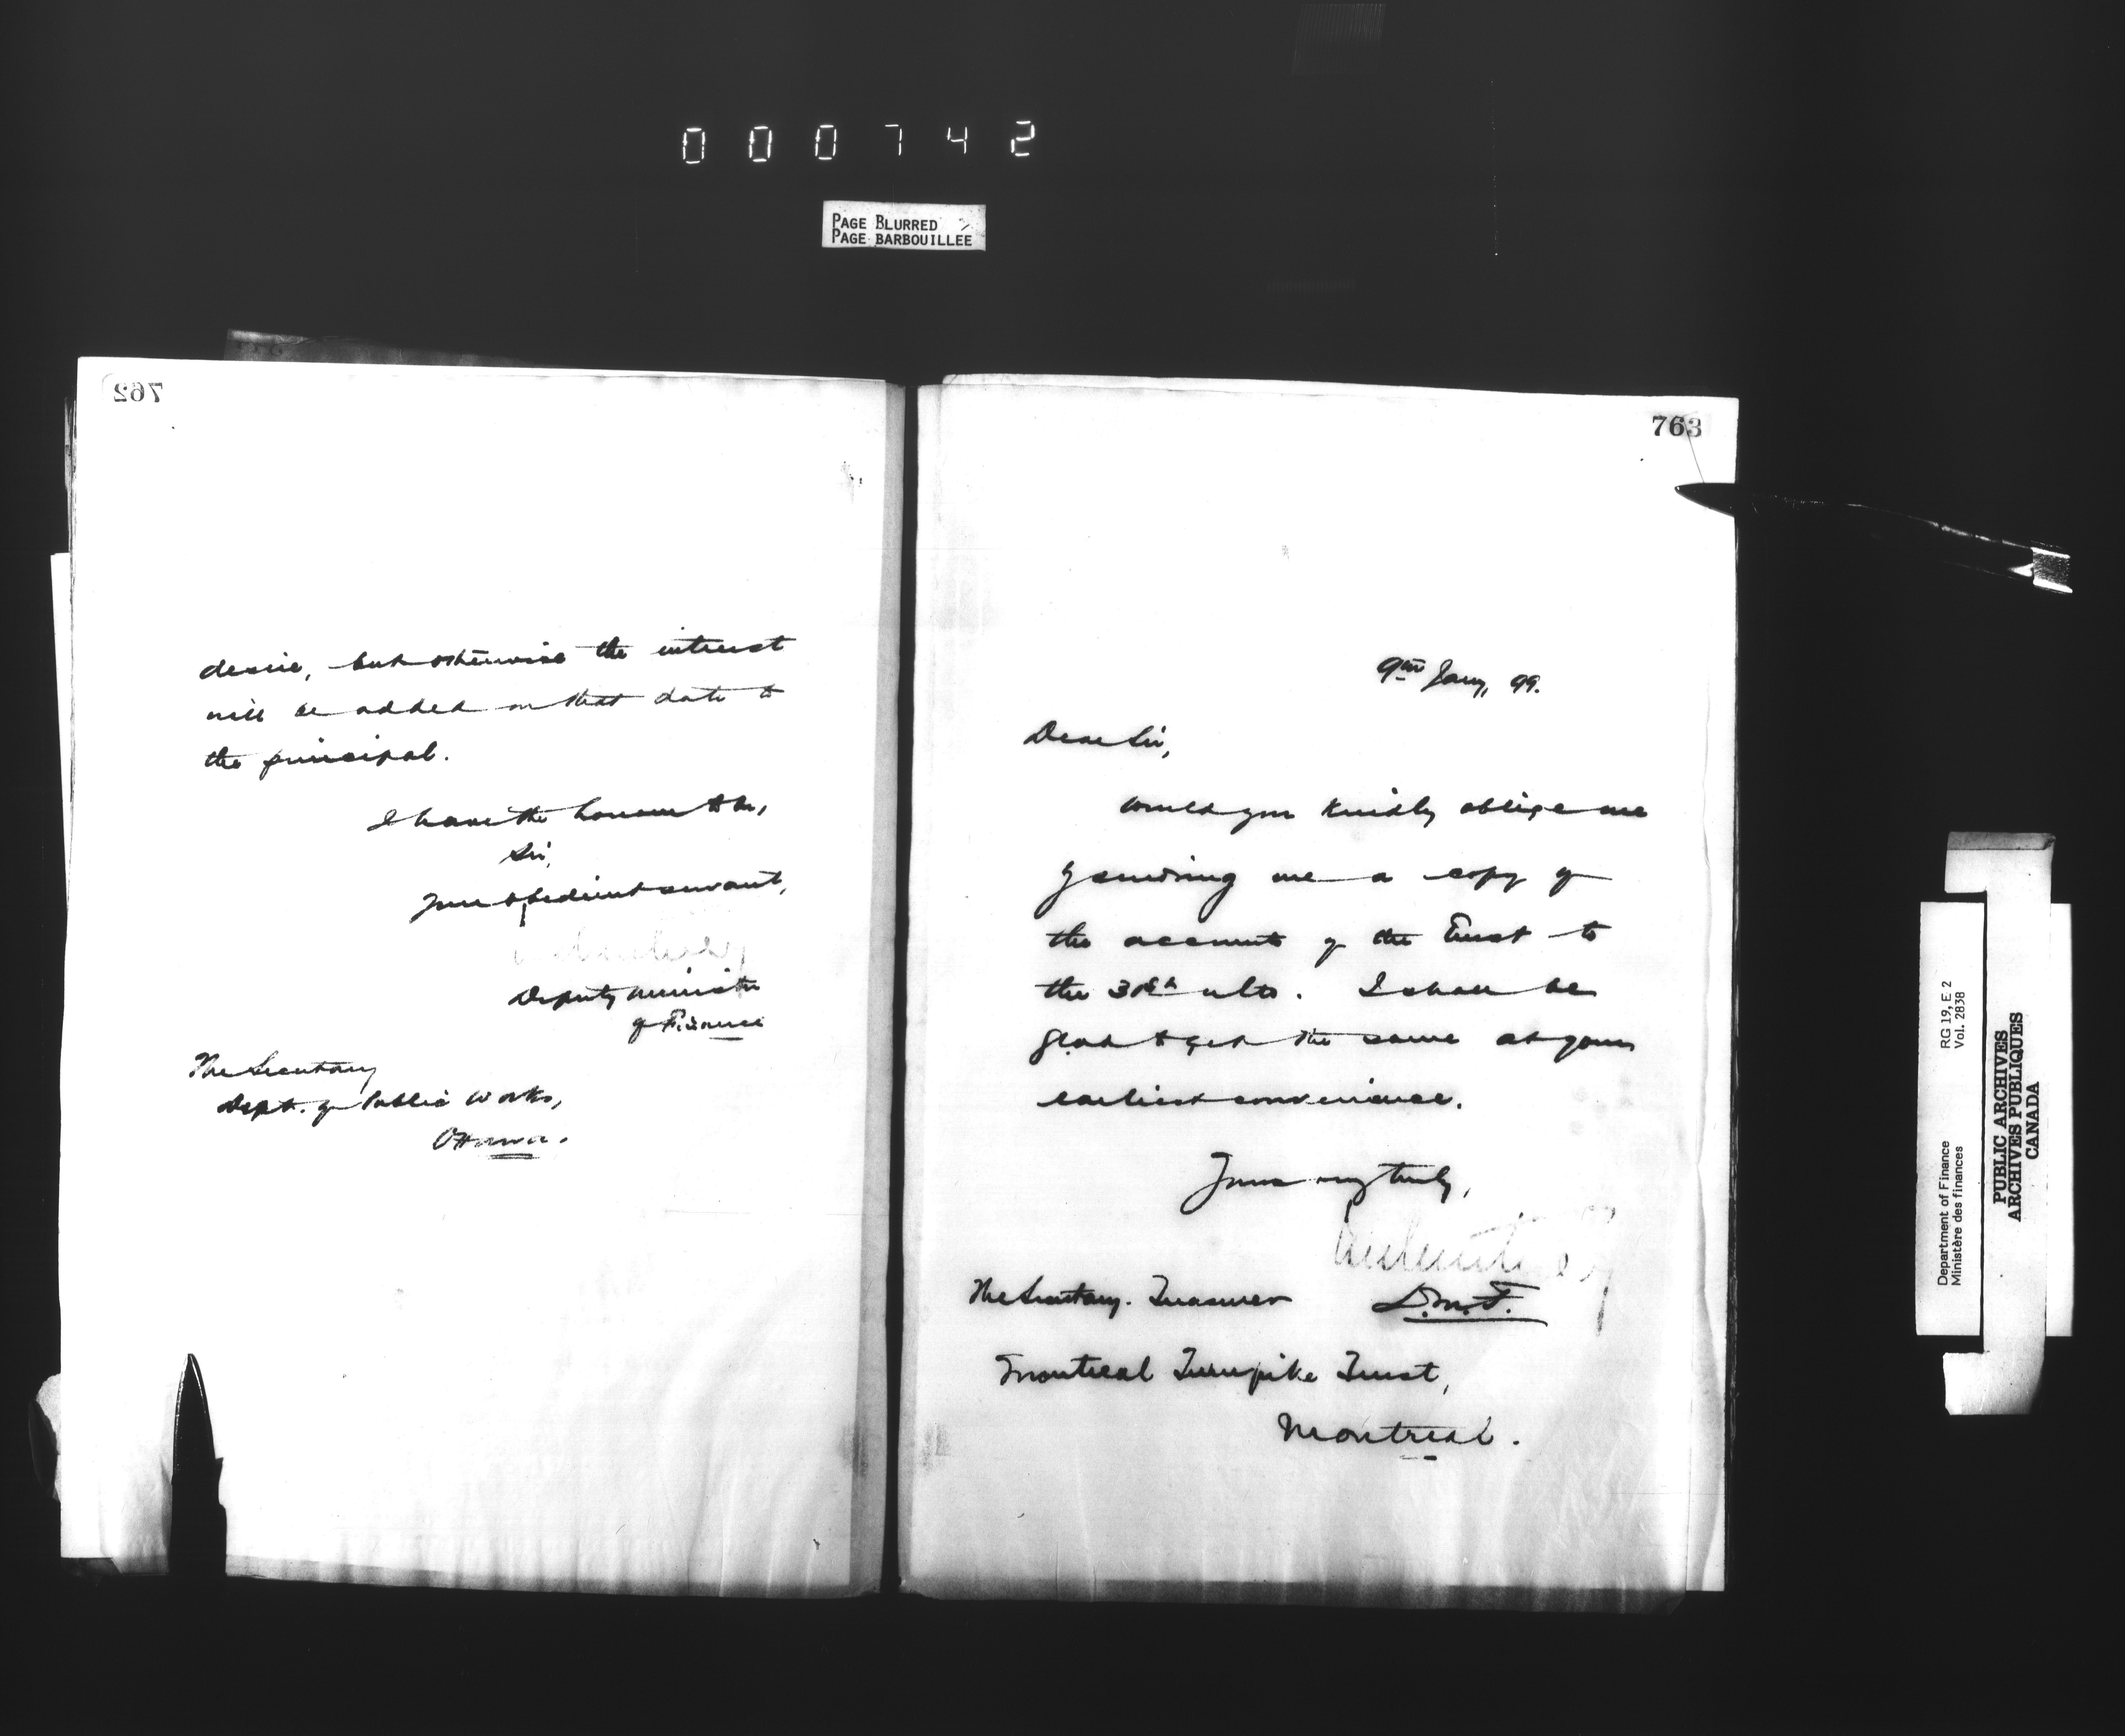 000742
PAGE BLURRED
PAGE BARBOUILLEE
762
desire, but otherwise the interest
will be added on that date to
the principal.
I have the honour to be,
Sir,
Your obedient servant,
Deputy Minister
of Finance
The Secretary
Dept. of Public Works,
Ottawa.
763
9th Jany, 99.
Dear Sir,
Would you kindly oblige me
by sending me a copy of
the accounts of the Trust to
the 31st ulto. I shall be
glad to get the same at your
earliest convenience.
Yours very truly,
D.M.F.
The Secretary-Treasurer
Montreal Turnpike Trust,
Montreal.
Department of Finance
Ministère des finances
RG 19, E 2
Vol. 2838
PUBLIC ARCHIVES
ARCHIVES PUBLIQUES
CANADA